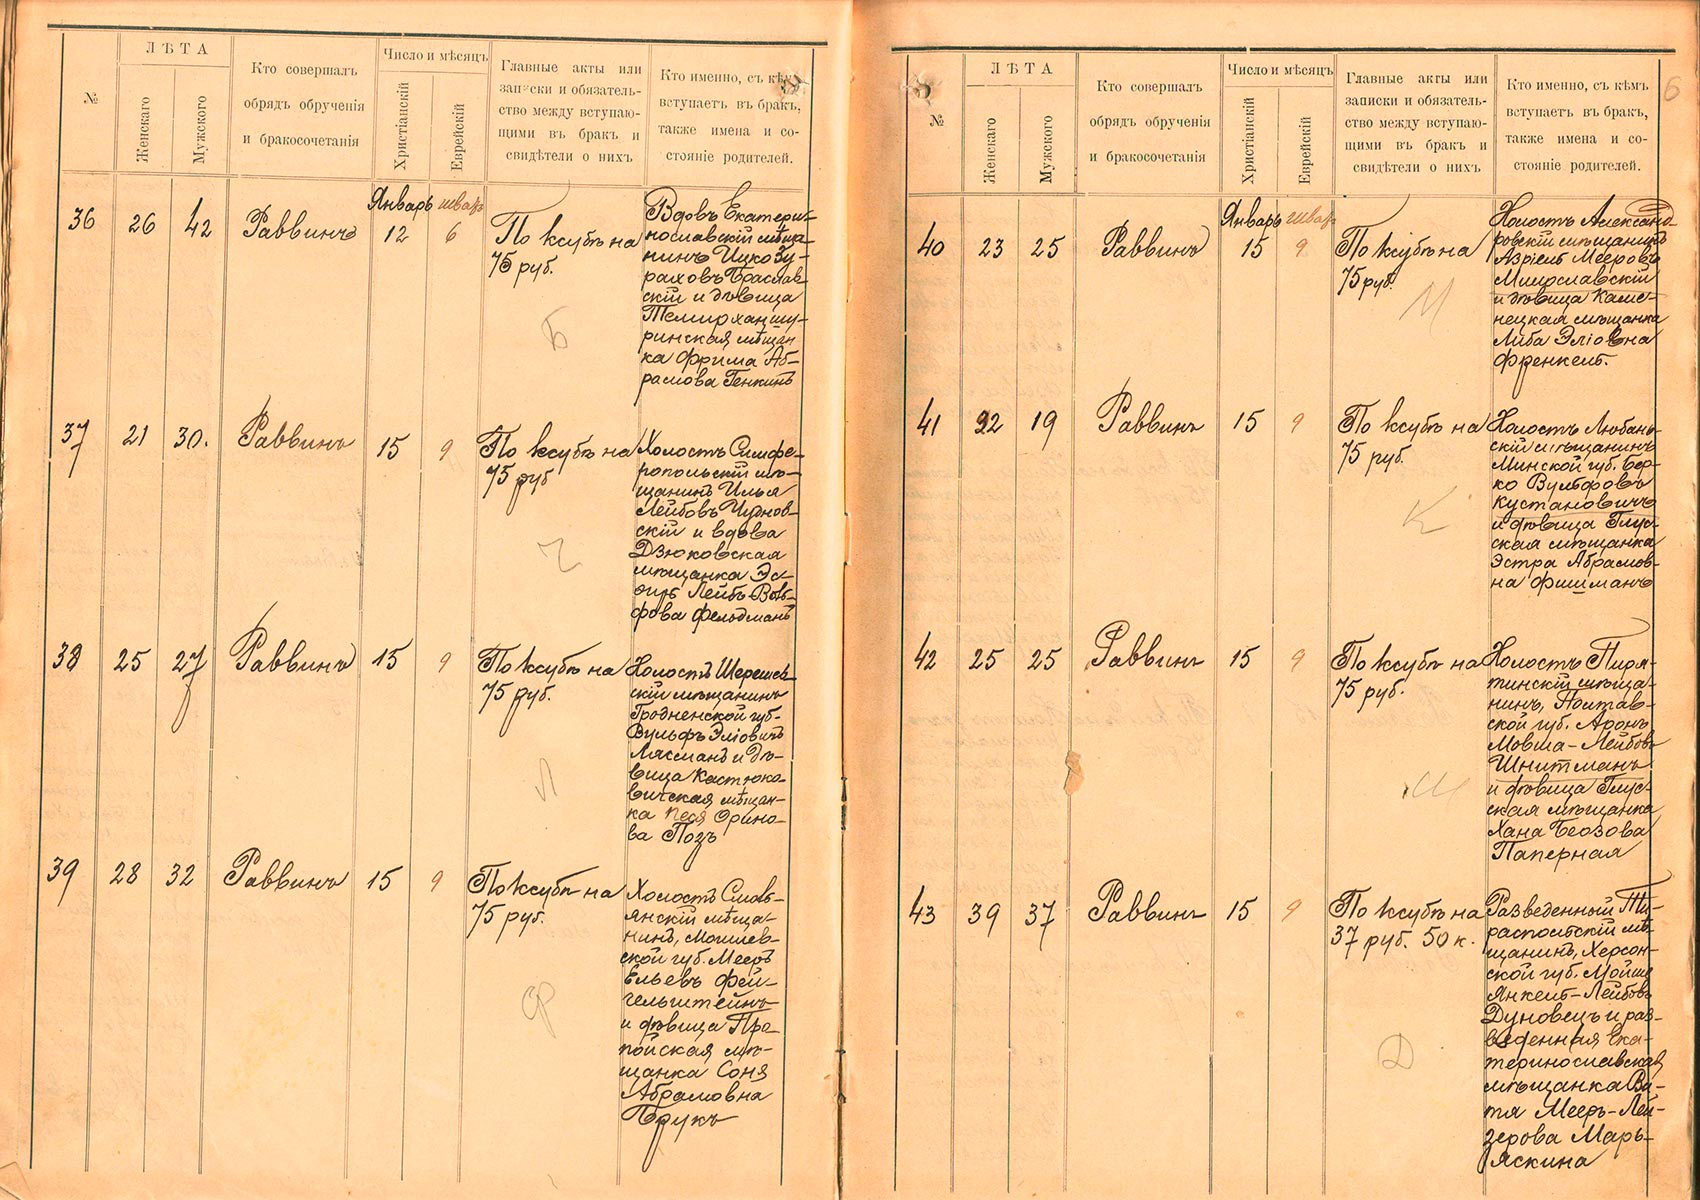 №
ЛѢТА
Женскаго
Мужского
Кто совершалъ
обрядъ обрученія
и бракосочетанія
Число и мѣсяцъ
Христіанскій
Еврейскій
Главные акты или
записки и обязатель-
ство между вступаю-
щими въ бракъ и
свидѣтели о нихъ
Кто именно, съ кѣмъ
вступаетъ въ бракъ,
также имена и со-
стояніе родителей.
36
26
42
Раввинъ
Январь
12
шват
6
По ксубѣ на
75 руб.
Б
Вдовъ Екатери-
нославскій мѣща-
нинъ Ицко Зу-
раховъ Браслав-
скій и дѣвица
Темирханшу-
ринская мѣщан
ка Фрима Аб-
рамова Генкинъ
37
21
30.
Раввинъ
15
9
По ксубѣ на
75 руб
Ч
Холостъ Симфе-
ропольскій мѣ-
щанинъ Илья
Лейбовъ Чудно́в-
скій и вдова
Дзюковская
мѣщанка Эс-
Лейбъ-Воль-
фова Фельдманъ
38
25
27
Раввинъ
15
9
По ксубѣ на
75 руб.
Л
Холостъ Шерешев-
скій мѣщанинъ
Гродненской губ.
Вульфъ Эліовичъ
Ляхман и дѣ-
вица Костюко-
вичская мѣщан-
ка Песя Орино-
ва Позъ
39
28
32
Раввинъ
15
9
По ксубѣ на
75 руб.
Ф
Холостъ Смоль-
янскій мѣща-
нинъ, Могилев-
ской губ. Мееръ
Ельевъ Фей-
гельштейнъ
и дѣвица Про-
пойская мѣ-
щанка Соня
Абрамовна
Брукъ
6
№
ЛѢТА
Женскаго
Мужского
Кто совершалъ
обрядъ обрученія
и бракосочетанія
Число и мѣсяцъ
Христіанскій
Еврейскій
Главные акты или
записки и обязатель-
ство между вступаю-
щими въ бракъ и
свидѣтели о нихъ
Кто именно, съ кѣмъ
вступаетъ въ бракъ,
также имена и со-
стояніе родителей.
40
23
25
Раввинъ
Январь
15
шват
9
По ксубѣ на
75 руб.
М
Холостъ Александ-
ровскій мѣщанинъ
Азріель Мееровъ
Миирславскій
и дѣвица Каме-
нецкая мѣщанка
Либа Эліовна
Френкель.
41
22
19
Раввинъ
15
9
По ксубѣ на
75 руб.
К
Холостъ Любань-
скій мѣщанинъ
Минской губ. Бер-
ко Вульфовъ
Кустановичъ
и дѣвица Глус-
ская мѣщанка
Эстра Абрамов-
на Фишманъ
42
25
25
Раввинъ
15
9
По ксубѣ на
75 руб.
Ш
Холостъ Пиря-
тинскій мѣща-
нинъ, Полтав-
ской губ. Аронъ
Мовша-Лейбовъ
Шнитманъ
и дѣвица Глус-
ская мѣщанка
Хана Беозова
Паперная
43
39
37
Раввинъ
15
9
По ксубѣ на
37 руб. 50 к.
Д
Разведенный Ти-
распольскій мѣ-
щанинъ, Херсон-
ской губ. Мойше
Янкель-Лейбовъ
Дуновецъ и раз-
веденная Ека-
теринославская
мѣщанка Ба-
тя Мееръ-Лей-
зерова Марь-
яскина